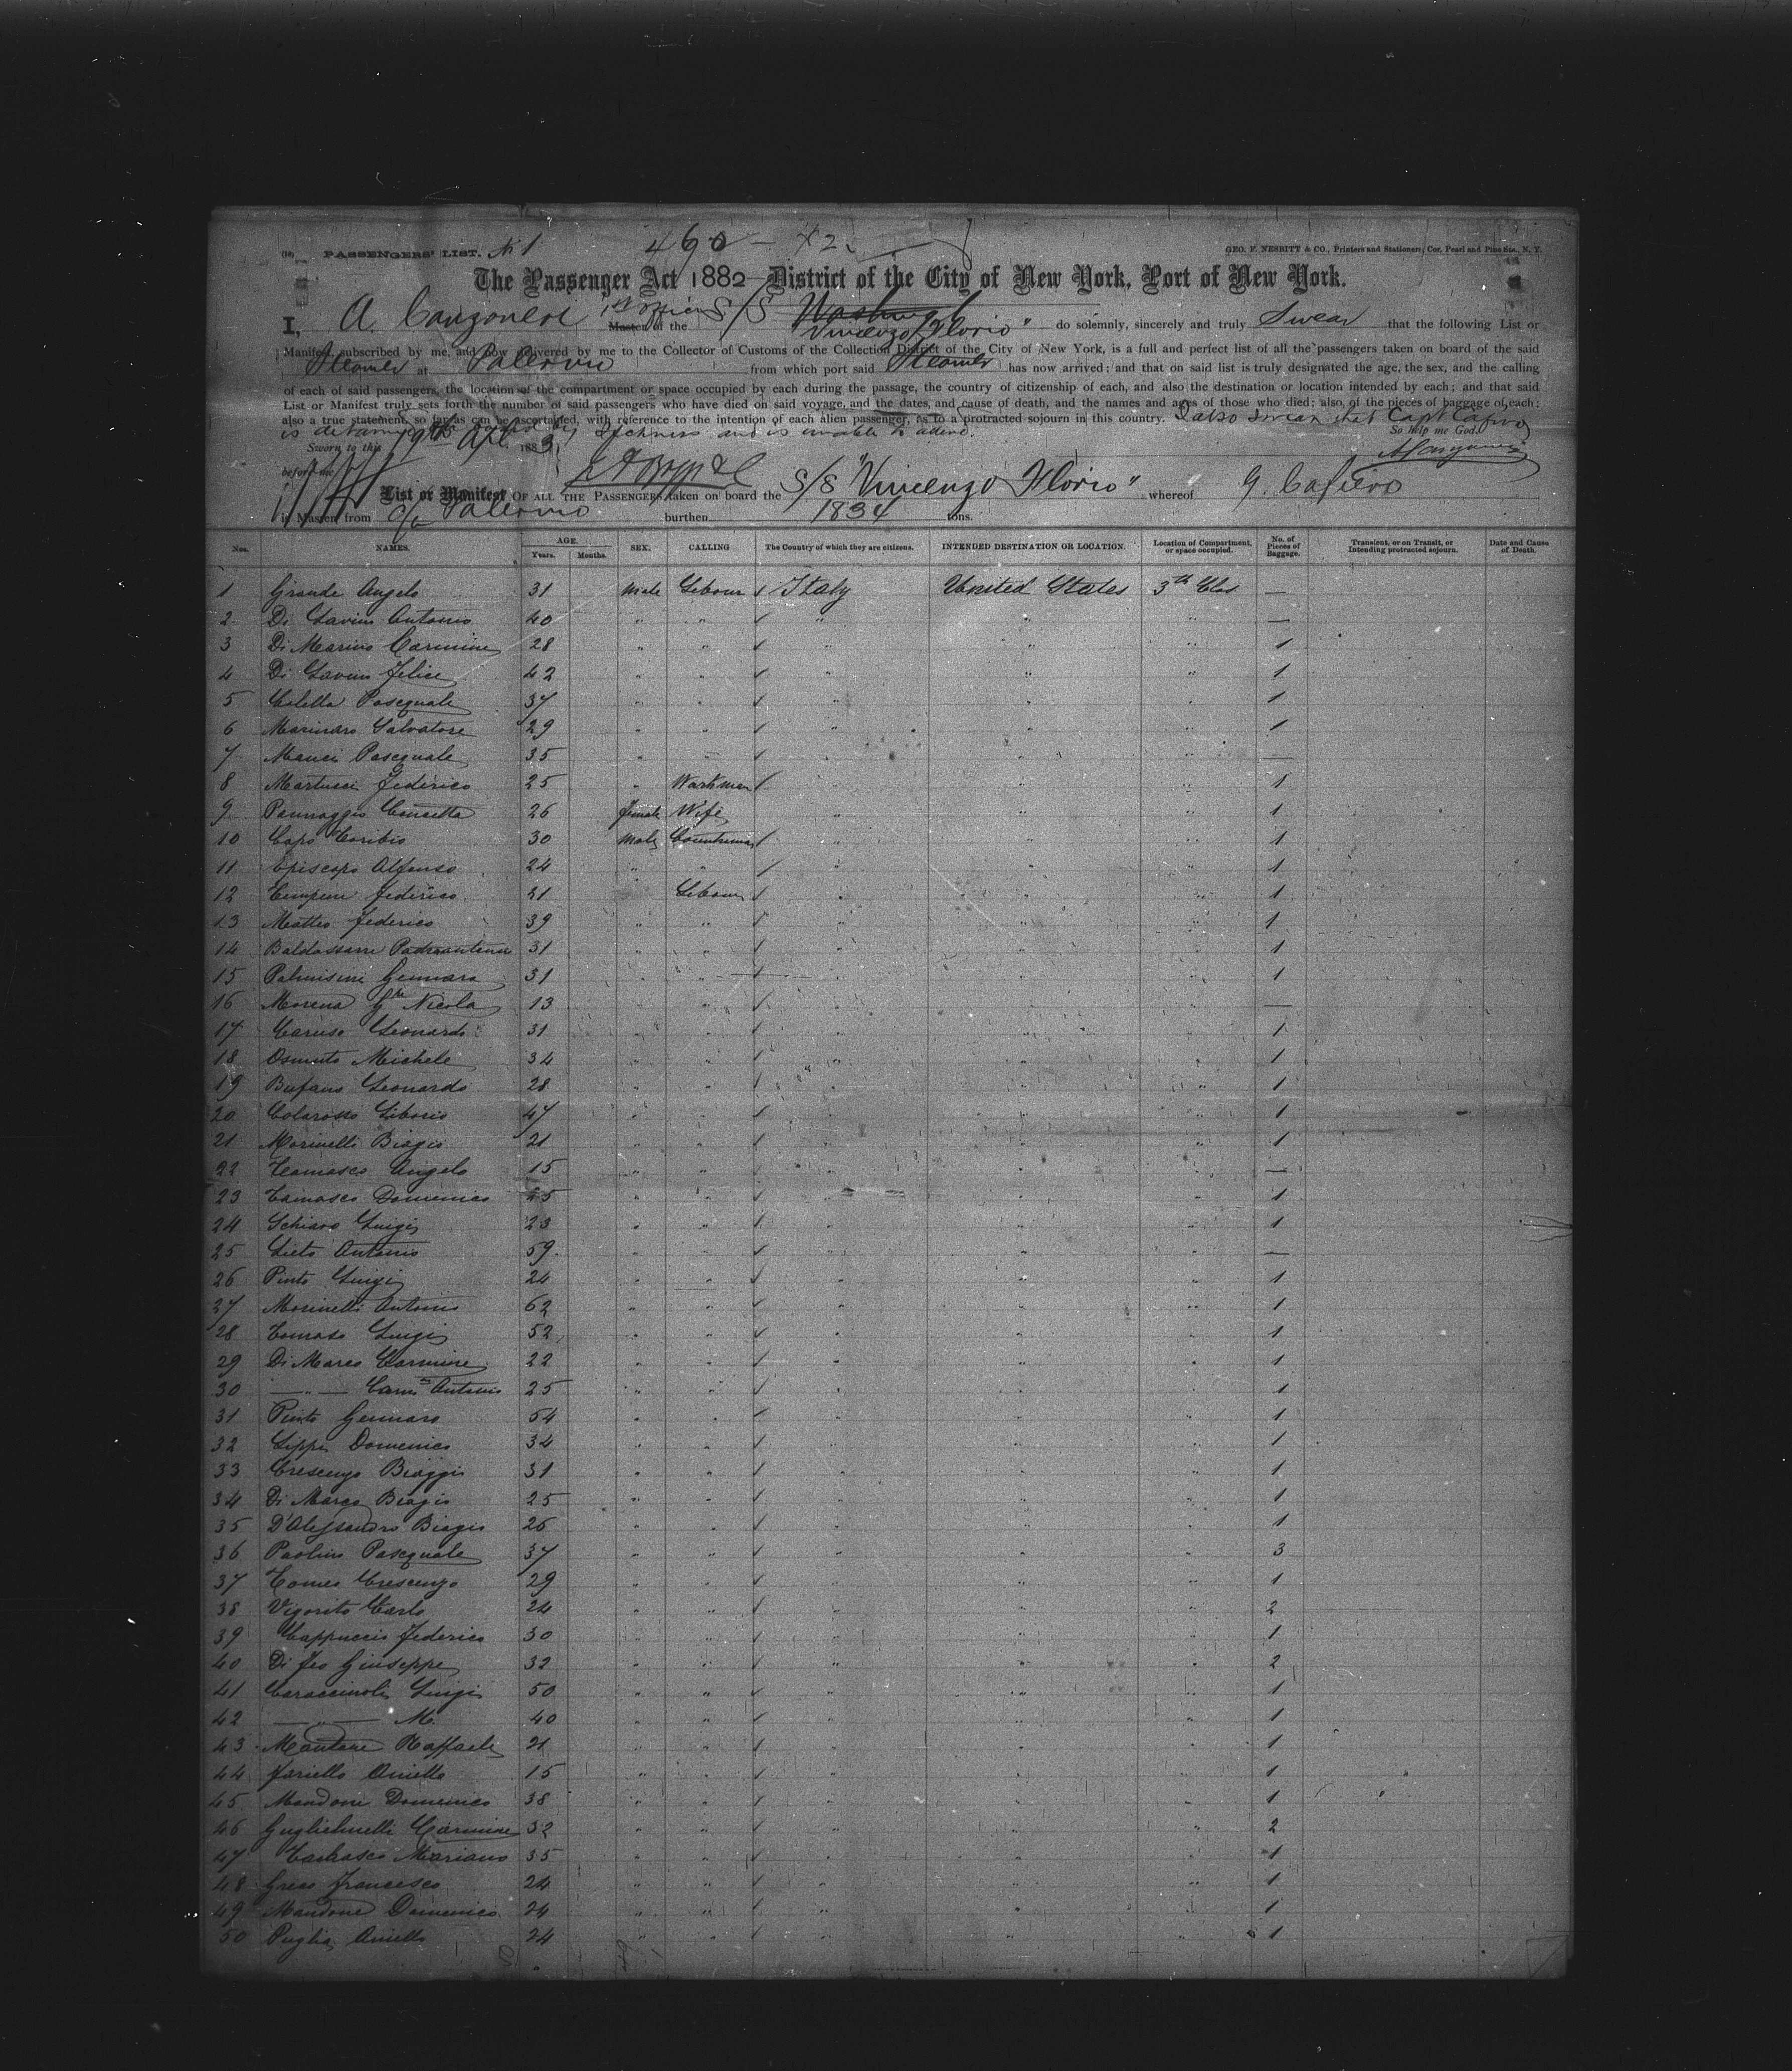 PASSENGERS' LIST. No 1 490
GEO. F. NESBITT & CO., Printers and Stationers, Cor. Pearl and Pine Sts., N. Y.
The Passenger Act 1882 District of the City of New York, Port of New York.
I, A. Canzoneri 1st Officer Master of the S/S Washingt Vincenzo Florio" do solemnly, sincerely and truly Swear that the following List or
Manifest, subscribed by me, and now delivered by me to the Collector of Customs of the Collection District of the City of New York, is a full and perfect list of all the passengers taken on board of the said
Steamer at Palermo from which port said Steamer has now arrived; and that on said list is truly designated the age, the sex, and the calling
of each of said passengers, the location of the compartment or space occupied by each during the passage, the country of citizenship of each, and also the destination or location intended by each; and that said
List or Manifest truly sets forth the number of said passengers who have died on said voyage, and the dates, and cause of death, and the names and ages of those who died; also, of the pieces of baggage of each;
also a true statement, so far as can be ascertained, with reference to the intention of each alien passenger, as to a protracted sojourn in this country. I also swear that Capt Cafiero
is detained on board by sickness and is unable to attend. So help me God.
Sworn to this 9th Apl 1883
before me
List or Manifest OF ALL THE PASSENGERS taken on board the S/S "Vincenzo Florio" whereof G. Cafiero
is Master, from Palermo burthen 1834 tons.
Nos. NAMES. AGE. Years. Months. SEX. CALLING The Country of which they are citizens. INTENDED DESTINATION OR LOCATION. Location of Compartment, or space occupied. No. of Pieces of Baggage. Transient, or on Transit, or Intending protracted sojourn. Date and Cause of Death.
1 Grande Angelo 31 Male Labour Italy United States 3th Clas —
2 Di Gavino Antonio 40 " " " " " —
3 Di Marino Carmine 28 " " " " " 1
4 Di Gavino Felice 42 " " " " " 1
5 Coletta Pasquale 37 " " " " " 1
6 Marinaro Salvatore 29 " " " " " 1
7 Mauci Pasquale 35 " " " " " —
8 Martucci Federico 25 " Workman " " " 1
9 Pannaggio Concetta 26 Female Wife " " " 1
10 Capo Toribio 30 Male Countryman " " " 1
11 Episcopo Alfonso 24 " " " " " 1
12 Federico 21 Labour " " " 1
13 Matteo Federico 39 " " " " " 1
14 Baldassarre 31 " " " " " 1
15 Palmisani Gennaro 31 " " " " " 1
16 Morena Gre Nicola 13 " " " " " —
17 Caruso Leonardo 31 " " " " " 1
18 Michele 34 " " " " " 1
19 Bufano Leonardo 28 " " " " " 1
20 Colarosso Liborio 47 " " " " " 1
21 Morinelli Biagio 21 " " " " " 1
22 Tomasco Angelo 15 " " " " " —
23 Tomasco Domenico 25 " " " " " 1
24 Schiavo Luigi 23 " " " " " 1
25 Lieto Antonio 59 " " " " " —
26 Pinto Luigi 24 " " " " " 1
27 Morinelli Antonio 62 " " " " " 1
28 Tomaso Luigi 52 " " " " " 1
29 Di Marco Carmine 22 " " " " " 1
30 — " — Carmn Antonio 25 " " " " " 1
31 Pinto Gennaro 54 " " " " " 1
32 Lippi Domenico 34 " " " " " 1
33 Crescenzo Biaggio 31 " " " " " 1
34 Di Marco Biagio 25 " " " " " 1
35 D'Alessandro Biagio 26 " " " " " 1
36 Paolino Pasquale 37 " " " " " 3
37 Tomeo Crescenzo 29 " " " " " 1
38 Vigorito Carlo 24 " " " " " 2
39 Cappuccio Federico 30 " " " " " 1
40 Di Feo Giuseppe 32 " " " " " 2
41 Caraccinolo Luigi 50 " " " " " 1
42 — " — M. 40 " " " " " 1
43 Raffaele 21 " " " " " 1
44 Fariello Aniello 15 " " " " " 1
45 Mandoni Domenico 38 " " " " " 1
46 Guglielmelli Carmine 32 " " " " " 2
47 Mariano 35 " " " " " 1
48 Greco Francesco 24 " " " " " 1
49 Mandoni Domenico 24 " " " " " 1
50 Puglia Aniello 24 " " " " " 1